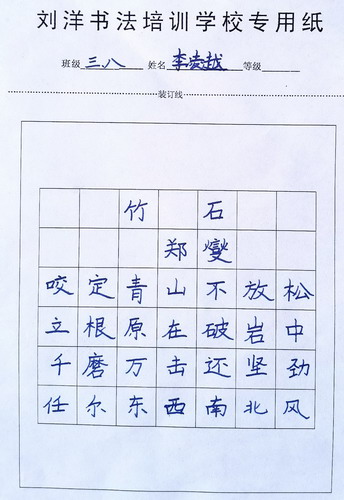 刘洋书法培训学校专用纸
班级 三.八 姓名 李凌越 等级
装订线
竹石
郑燮
咬定青山不放松
立根原在破岩中
千磨万击还坚劲
任尔东西南北风